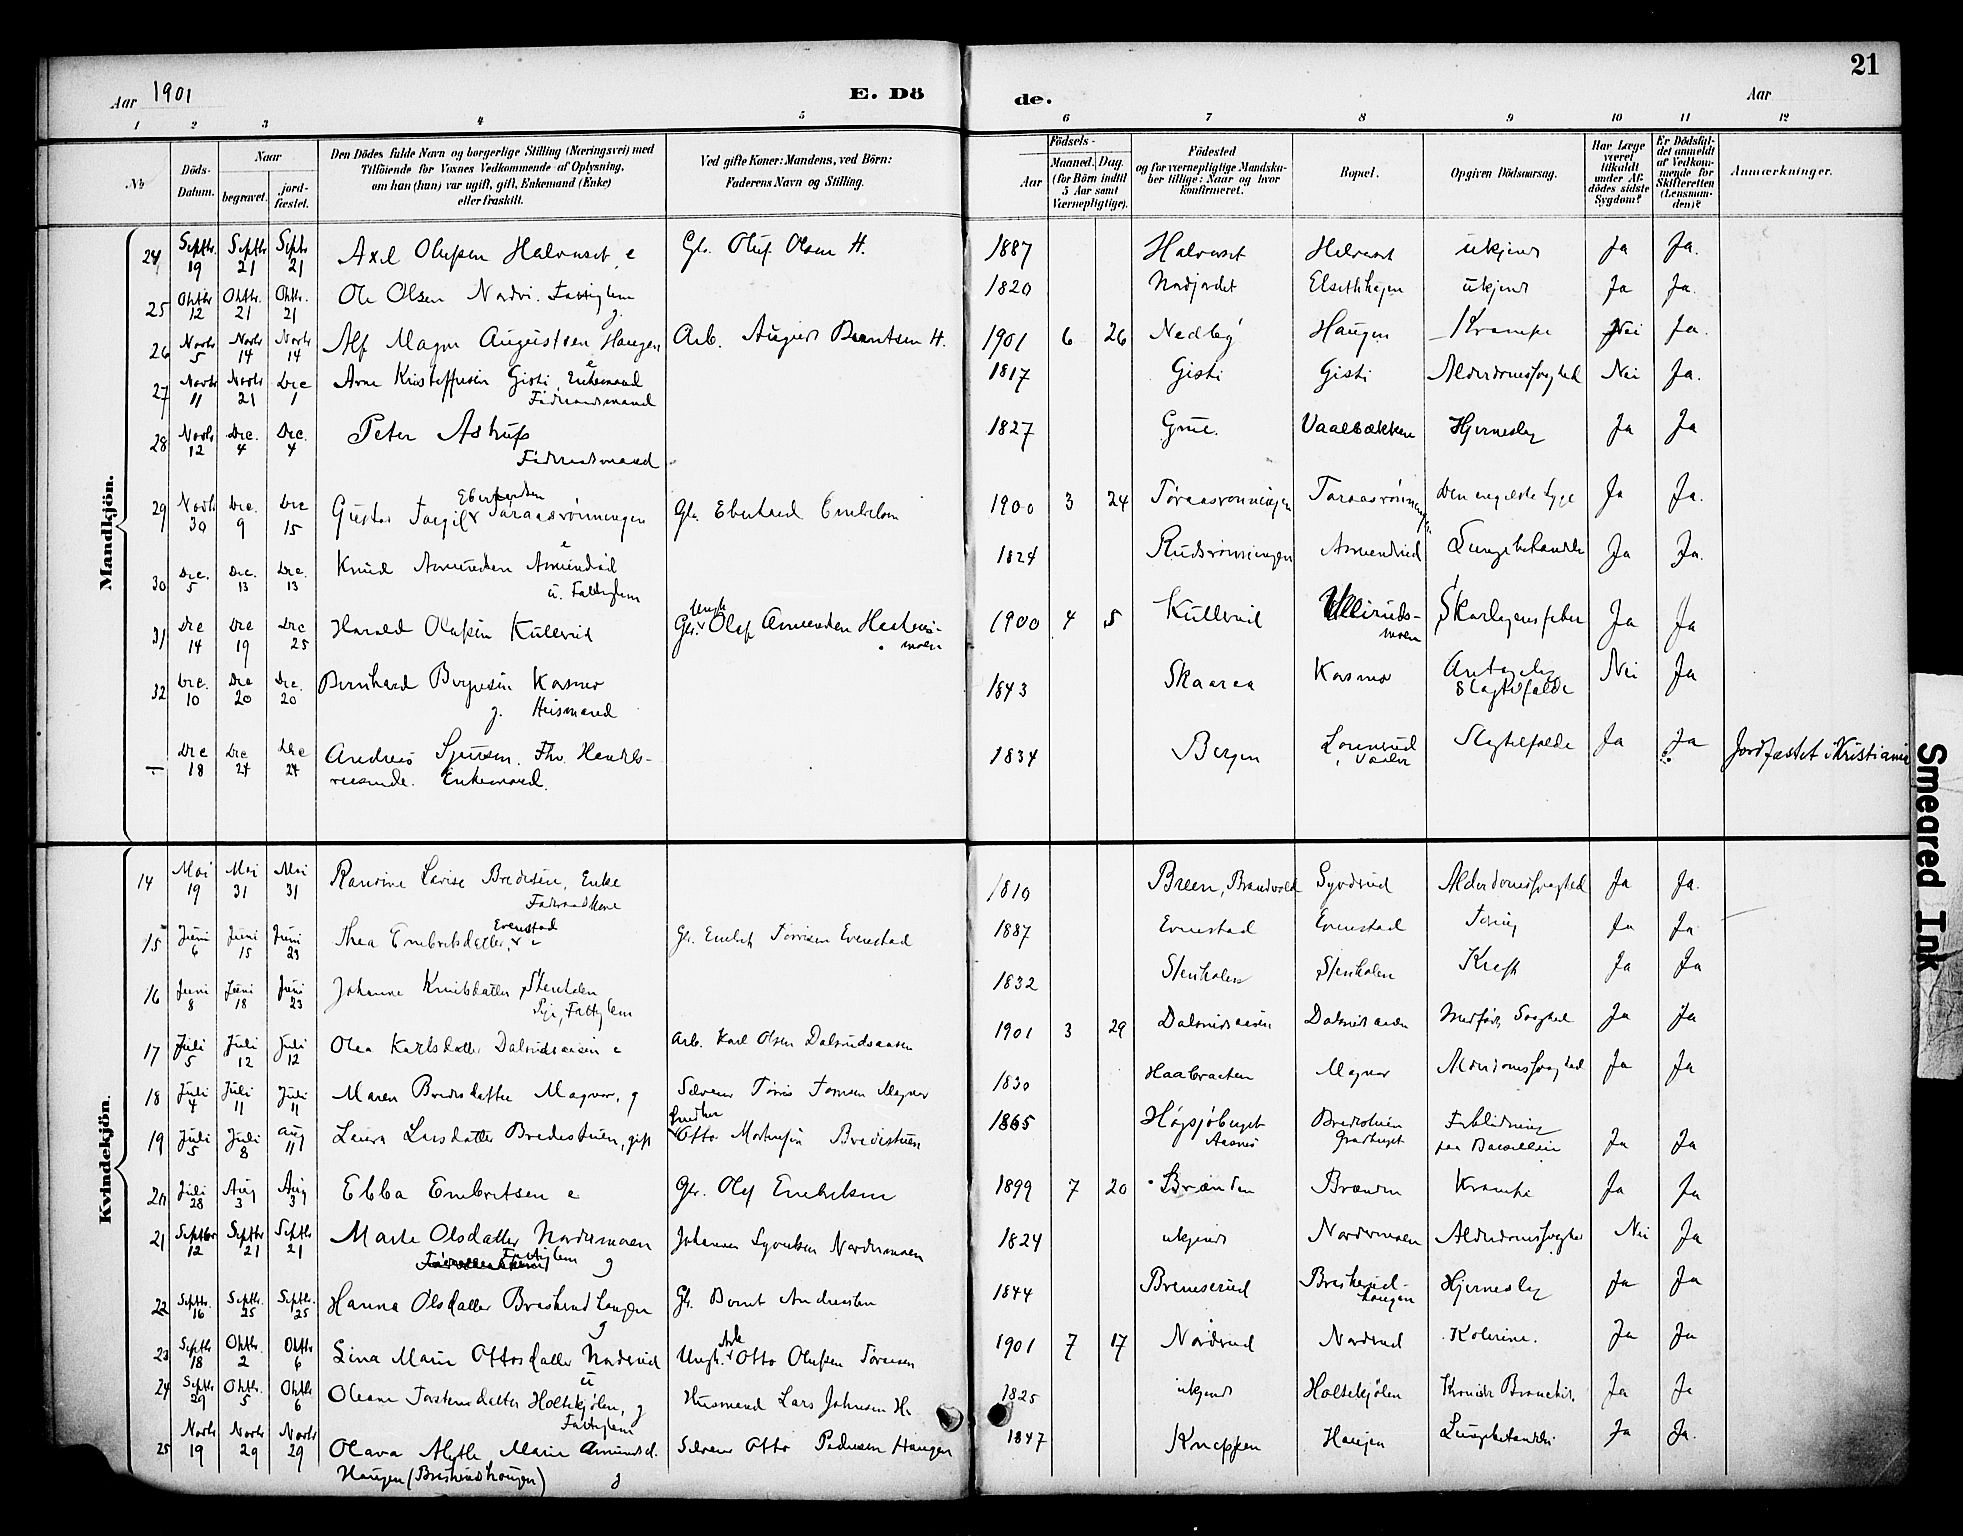 21
Aar 1901
E. Dö
de.
Aar
1 2 3 4 5 6 7 8 9 10 11 12
No
Döds-Datum.
Naar
begravet.
jord-fæstet.
Den Dödes fulde Navn og borgerlige Stilling (Næringsvei) med
Tilföiende for Voxnes Vedkommende af Oplysning,
om han (hun) var ugift, gift, Enkemand (Enke)
eller fraskilt.
Ved gifte Koner: Mandens, ved Börn:
Faderens Navn og Stilling.
Födsels-
Aar
Maaned.
Dag.
(for Börn indtil
5 Aar samt
Værnepligtige).
Födested
og for værnepligtige Mandska-
ber tillige: Naar og hvor
konfirmeret.
Bopæl.
Opgiven Dödsaarsag.
Har Læge
været
tilkaldt
under Af-
dödes sidste
Sygdom?
Er Dödsfal-
det anmeldt
af Vedkom-
mende for
Skifteretten
(Lensman-
den)?
Anmærkninger.
Mandkjön.
24 Septbr. 19 Septbr 21 Septbr 21 Axel Olufsen Halvorset, e Gb. Oluf Olsen H. 1887 Halvorset Halvorset ukjendt Ja Ja.
25 Oktbr 12 Oktbr. 21 Oktbr. 21 Ole Olsen Nordvi. Fattiglem g. 1820 Nordjordet Elsethhagen ukjendt Ja Ja.
26 Novbr 5 Novbr 14 Novbr 14 Alf Magne Augustsen Haugen e Arb. August Berntsen H. 1901 6 26 Nedby Haugen Krampe Nei Ja.
27 Novbr 11 Novbr 21 Dec 1 Arne Kristoffersen Gisti, Enkemand
Föderaadsmand 1817 Gisti Gisti Alderdomssvaghed Nei Ja.
28 Novbr 12 Dec. 4 Dec. 4 Peter Astrup
Föderaadsmand 1827 Grue. Vaalbækken Hjerneslag Ja Ja
29 Novbr 30 Dec. 9 Dec 15 Gustav Torgil Eberhardsen Toraasrönningen Gb. Eberhard Embretsen 1900 3 24 Toraasrönningen Toraasrönningen Den engelske Syge Ja Ja.
30 Dec. 5 Dec. 13 Dec. 13 Knud Amundsen Amundrud
u. Fattiglem 1824 Rudsrönningen Amundrud Lungebetændelse Ja Ja.
31 Dec 14 Dec 19 Dec 25 Harald Olafsen Kullerud Ungk. Olaf Amundsen
moen 1900 4 5 Kullerud Ullerudsmoen Skarlagensfeber Ja Ja
32 Dec. 10 Dec 20 Dec. 20 Bernhard Kosmo
g. Husmand 1843 Skaaraa Kosmo Antagelig
Slagtilfælde Nei Ja
— Dec 18 Dec 24 Dec 24 Andreas Sjursen. Fhv. Handels-
reisende. Enkemand. 1834 Bergen Vaaler Slagtilfælde Ja Ja Jordfæstet i Kristiania
Kvindekjön.
14 Mai 19 Mai 31 Mai 31 Randine Lovise Bredesen, Enke
Föderaadskone 1810 Breen, Brandvold Syverud Alderdomssvaghed Ja Ja.
15 Juni 6 Juni 15 Juni 23 Thea Embretsdatter Evenstad e Gb. Embret Törrisen Evenstad 1887 Evenstad Evenstad Tæring Ja Ja.
16 Juni 8 Juni 18 Juni 23 Johanne Knudsdatter Stenholen
Pige, Fattiglem 1832 Stenholen Stenholen Kræft Ja Ja
17 Juli 5 Juli 12 Juli 12 Olea Karlsdatter Dalsrudsaasen e Arb. Karl Olsen Dalsrudsaasen 1901 3 29 Dalsrudsaasen Dalsrudaasen Medfödt Svaghed Ja Ja
18 Juli 4 Juli 11 Juli 11 Maren Bredesdatter Magnor, g Selveier Törris Magnor 1830 Haabraaten Magnor Alderdomssvaghed Ja Ja
19 Juli 5 Juli 8 Aug 11 Laura Larsdatter Bredestuen, gift Otto Martinsen Bredestuen 1865 Högsjöberget
Aasnes Bredestuen Forblödning
paa Barselseng Ja Ja
20 Juli 28 Aug 3 Aug 3 Ebba Embretsen e Gbr. Olaf Embretsen 1899 7 20 Brænden Brænden Krampe Ja Ja
21 Septbr 12 Septbr 21 Septbr 21 Marte Olsdatter Nordermoen
Fattiglem g Johannes Syvertsen Nordermoen 1824 ukjendt Nordermoen Alderdomssvaghed Nei Ja
22 Septbr. 16 Septbr. 25 Septbr. 25 Hanna Olsdatter Braskerudhaugen
g Gb. Bernt Andersen 1844 Bremserud Braskerud-
haugen Hjerneslag Ja Ja
23 Septbr 18 Oktbr. 2 Oktbr 6 Lina Marie Ottosdatter Nordsrud
u Ungk. Arb Otto Olufsen 1901 7 17 Nordrud Nordrud Kolerine. Ja Ja
24 Septbr 29 Oktbr. 5 Oktbr 6 Oleane Torstensdatter Holtekjölen, g
Fattiglem Husmand Lars Johnsen H. 1825 ukjendt Holtekjölen Kronisk Bronchit. Ja Ja
25 Novbr 19 Novbr 29 Novbr 29 Olava Marie Amundsd.
Haugen (Braskerudhaugen) g Selveier Otto Pedersen Haugen 1847 Knappen Haugen Lungebetændelse Ja Ja.
Smeared Ink